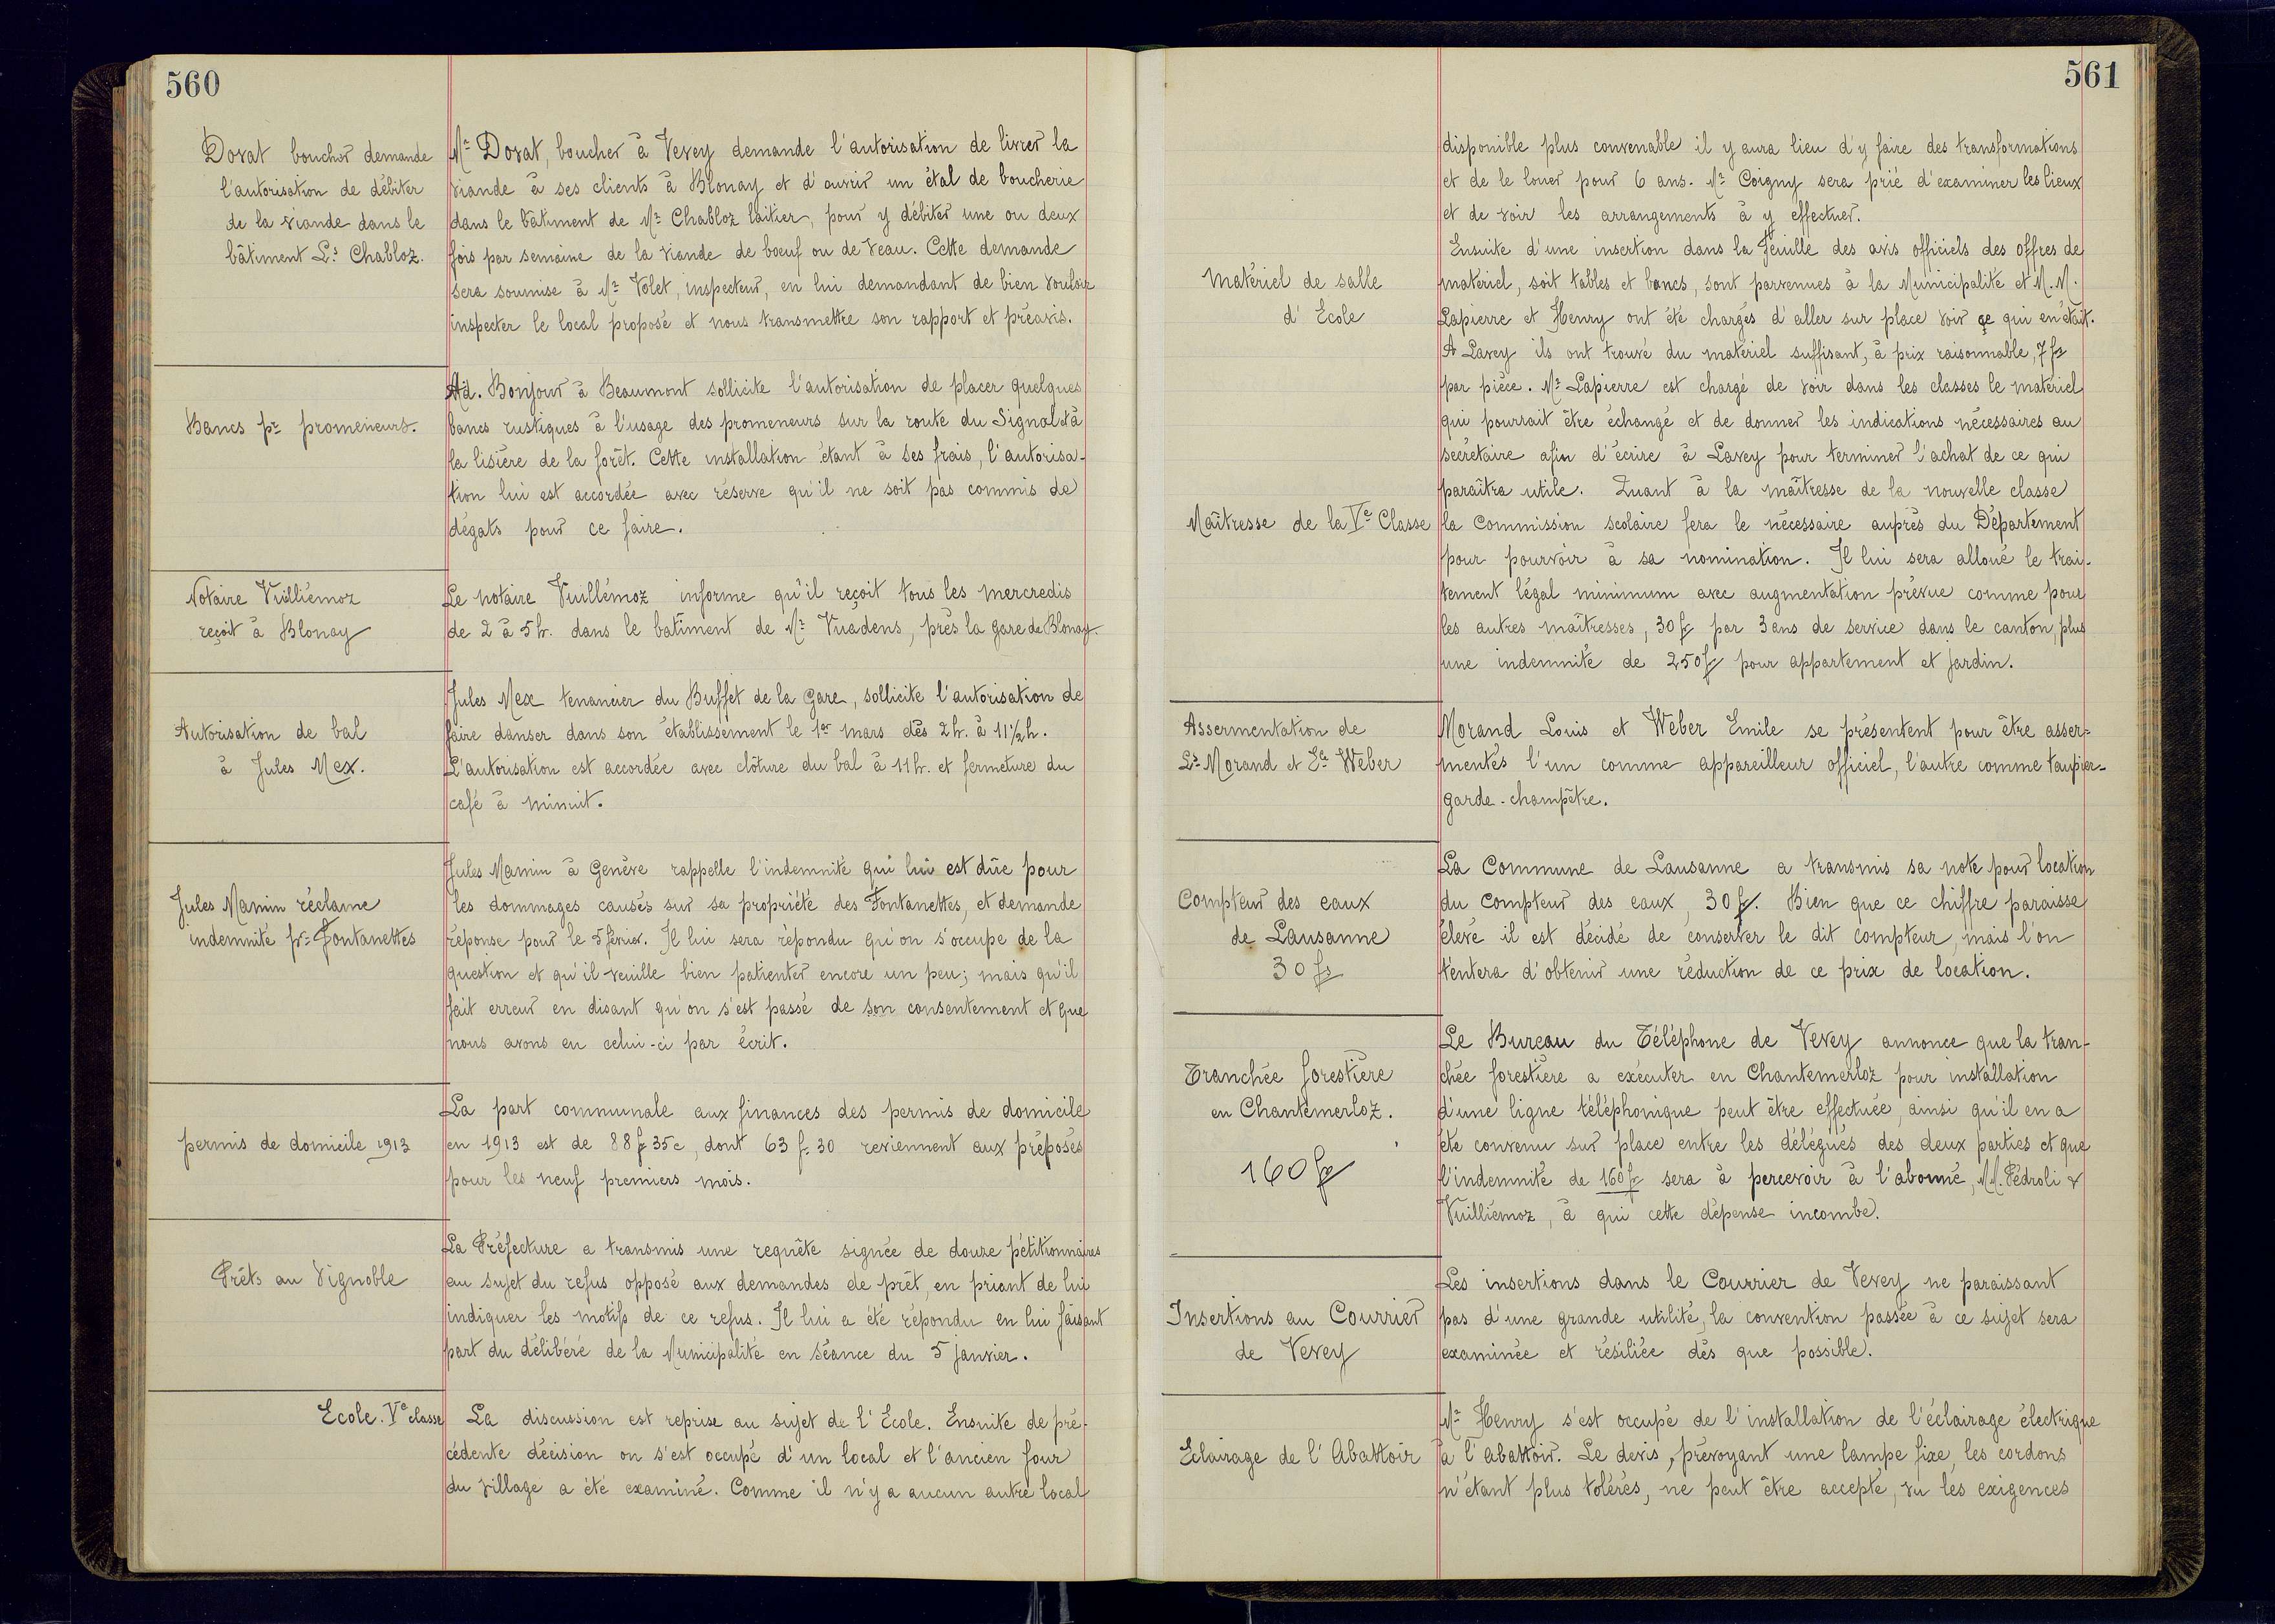 560
Dorat boucher demande
l'autorisation de débiter
de la viande dans le
bâtiment Ls Chabloz.
Mr Dorat, boucher à Vevey demande l'autorisation de livrer la
viande à ses clients à Blonay et d'ouvrir un étal de boucherie
dans le bâtiment de Mr Chabloz laitier, pour y débiter une ou deux
fois par semaine de la viande de bœuf ou de veau. Cette demande
sera soumise à Mr Volet, inspecteur, en lui demandant de bien vouloir
inspecter le local proposé et nous transmettre son rapport et préavis.
Bancs pr promeneurs.
Ad. Bonjour à Beaumont sollicite l'autorisation de placer quelques
bancs rustiques à l'usage des promeneurs sur la route du Signal et à
la lisière de la forêt. Cette installation étant à ses frais, l'autorisa-
tion lui est accordée avec réserve qu'il ne soit pas commis de
dégats pour ce faire.
Notaire Vuilliémoz
reçoit à Blonay
Le notaire Vuillémoz informe qu'il reçoit tous les mercredis
de 2 à 5 h. dans le batiment de Mr Vuadens, près la gare de Blonay.
Autorisation de bal
à Jules Mex.
Jules Mex tenancier du Buffet de la Gare, sollicite l'autorisation de
faire danser dans son établissement le 1er mars dès 2 h. à 11 1/2 h.
L'autorisation est accordée avec clôture du bal à 11 h. et fermeture du
café à minuit.
Jules Mamin réclame
indemnité pr Fontanettes
Jules Mamin à Genève rappelle l'indemnité qui lui est dûe pour
les dommages causés sur sa propriété des Fontanettes, et demande
réponse pour le 5 février. Il lui sera répondu qu'on s'occupe de la
question et qu'il veuille bien patienter encore un peu; mais qu'il
fait erreur en disant qu'on s'est passé de son consentement et que
nous avons eu celui-ci par écrit.
permis de domicile 1913
La part communale aux finances des permis de domicile
en 1913 est de 88 fr 35 c, dont 63 f. 30 reviennent aux préposés
pour les neuf premiers mois.
Prêts au Vignoble
La Préfecture a transmis une requête signée de douze pétitionnaires
au sujet du refus opposé aux demandes de prêt, en priant de lui
indiquer les motifs de ce refus. Il lui a été répondu en lui faisant
part du délibéré de la Municipalité en séance du 5 janvier.
Ecole. Ve classe
La discussion est reprise au sujet de l'Ecole. Ensuite de pré-
cédente décision on s'est occupé d'un local et l'ancien four
du village a été examiné. Comme il n'y a aucun autre local
561
disponible plus convenable il y aura lieu d'y faire des transformations
et de le louer pour 6 ans. Mr Coigny sera prié d'examiner les lieux
et de voir les arrangements à y effectuer.
Matériel de salle
d'Ecole
Ensuite d'une insertion dans la Feuille des avis officiels des offres de
matériel, soit tables et bancs, sont parvenues à la Municipalité et M.M.
Lapierre et Henry ont été chargés d'aller sur place voir ce qui en était.
A Lavey ils ont trouvé du matériel suffisant, à prix raisonnable, 7 frs
par pièce. Mr Lapierre est chargé de voir dans les classes le matériel
qui pourrait être échangé et de donner les indications nécessaires au
secrétaire afin d'écrire à Lavey pour terminer l'achat de ce qui
paraîtra utile. Quant à la maîtresse de la nouvelle classe
Maîtresse de la Ve Classe
la Commission scolaire fera le nécessaire auprès du Département
pour pourvoir à sa nomination. Il lui sera alloué le trai-
tement légal minimum avec augmentation prévue comme pour
les autres maîtresses, 30 fr par 3 ans de service dans le canton, plus
une indemnité de 250 fr pour appartement et jardin.
Assermentation de
Ls Morand et Ele Weber
Morand Louis et Wéber Emile se présentent pour être asser-
mentés l'un comme appareilleur officiel, l'autre comme taupier-
garde-champêtre.
Compteur des eaux
de Lausanne
30 frs
La Commune de Lausanne a transmis sa note pour location
du compteur des eaux, 30 fr. Bien que ce chiffre paraisse
élevé il est décidé de conserver le dit compteur, mais l'on
tentera d'obtenir une réduction de ce prix de location.
Tranchée forestière
en Chantemerloz.
160 fr
Le Bureau du Téléphone de Vevey annonce que la tran-
chée forestière a exécuter en Chantemerloz pour installation
d'une ligne téléphonique peut être effectuée, ainsi qu'il en a
été convenu sur place entre les délégués des deux parties et que
l'indemnité de 160 fr sera à percevoir à l'abonné, MM. Pédroli &
Vuilliémoz, à qui cette dépense incombe.
Insertions au Courrier
de Vevey
Les insertions dans le Courrier de Vevey ne paraissant
pas d'une grande utilité, la convention passée à ce sujet sera
examinée et résiliée dès que possible.
Eclairage de l'Abattoir
Mr Henry s'est occupé de l'installation de l'éclairage électrique
à l'abattoir. Le devis, prévoyant une lampe fixe, les cordons
n'étant plus tolérés, ne peut être accepté, vu les exigences